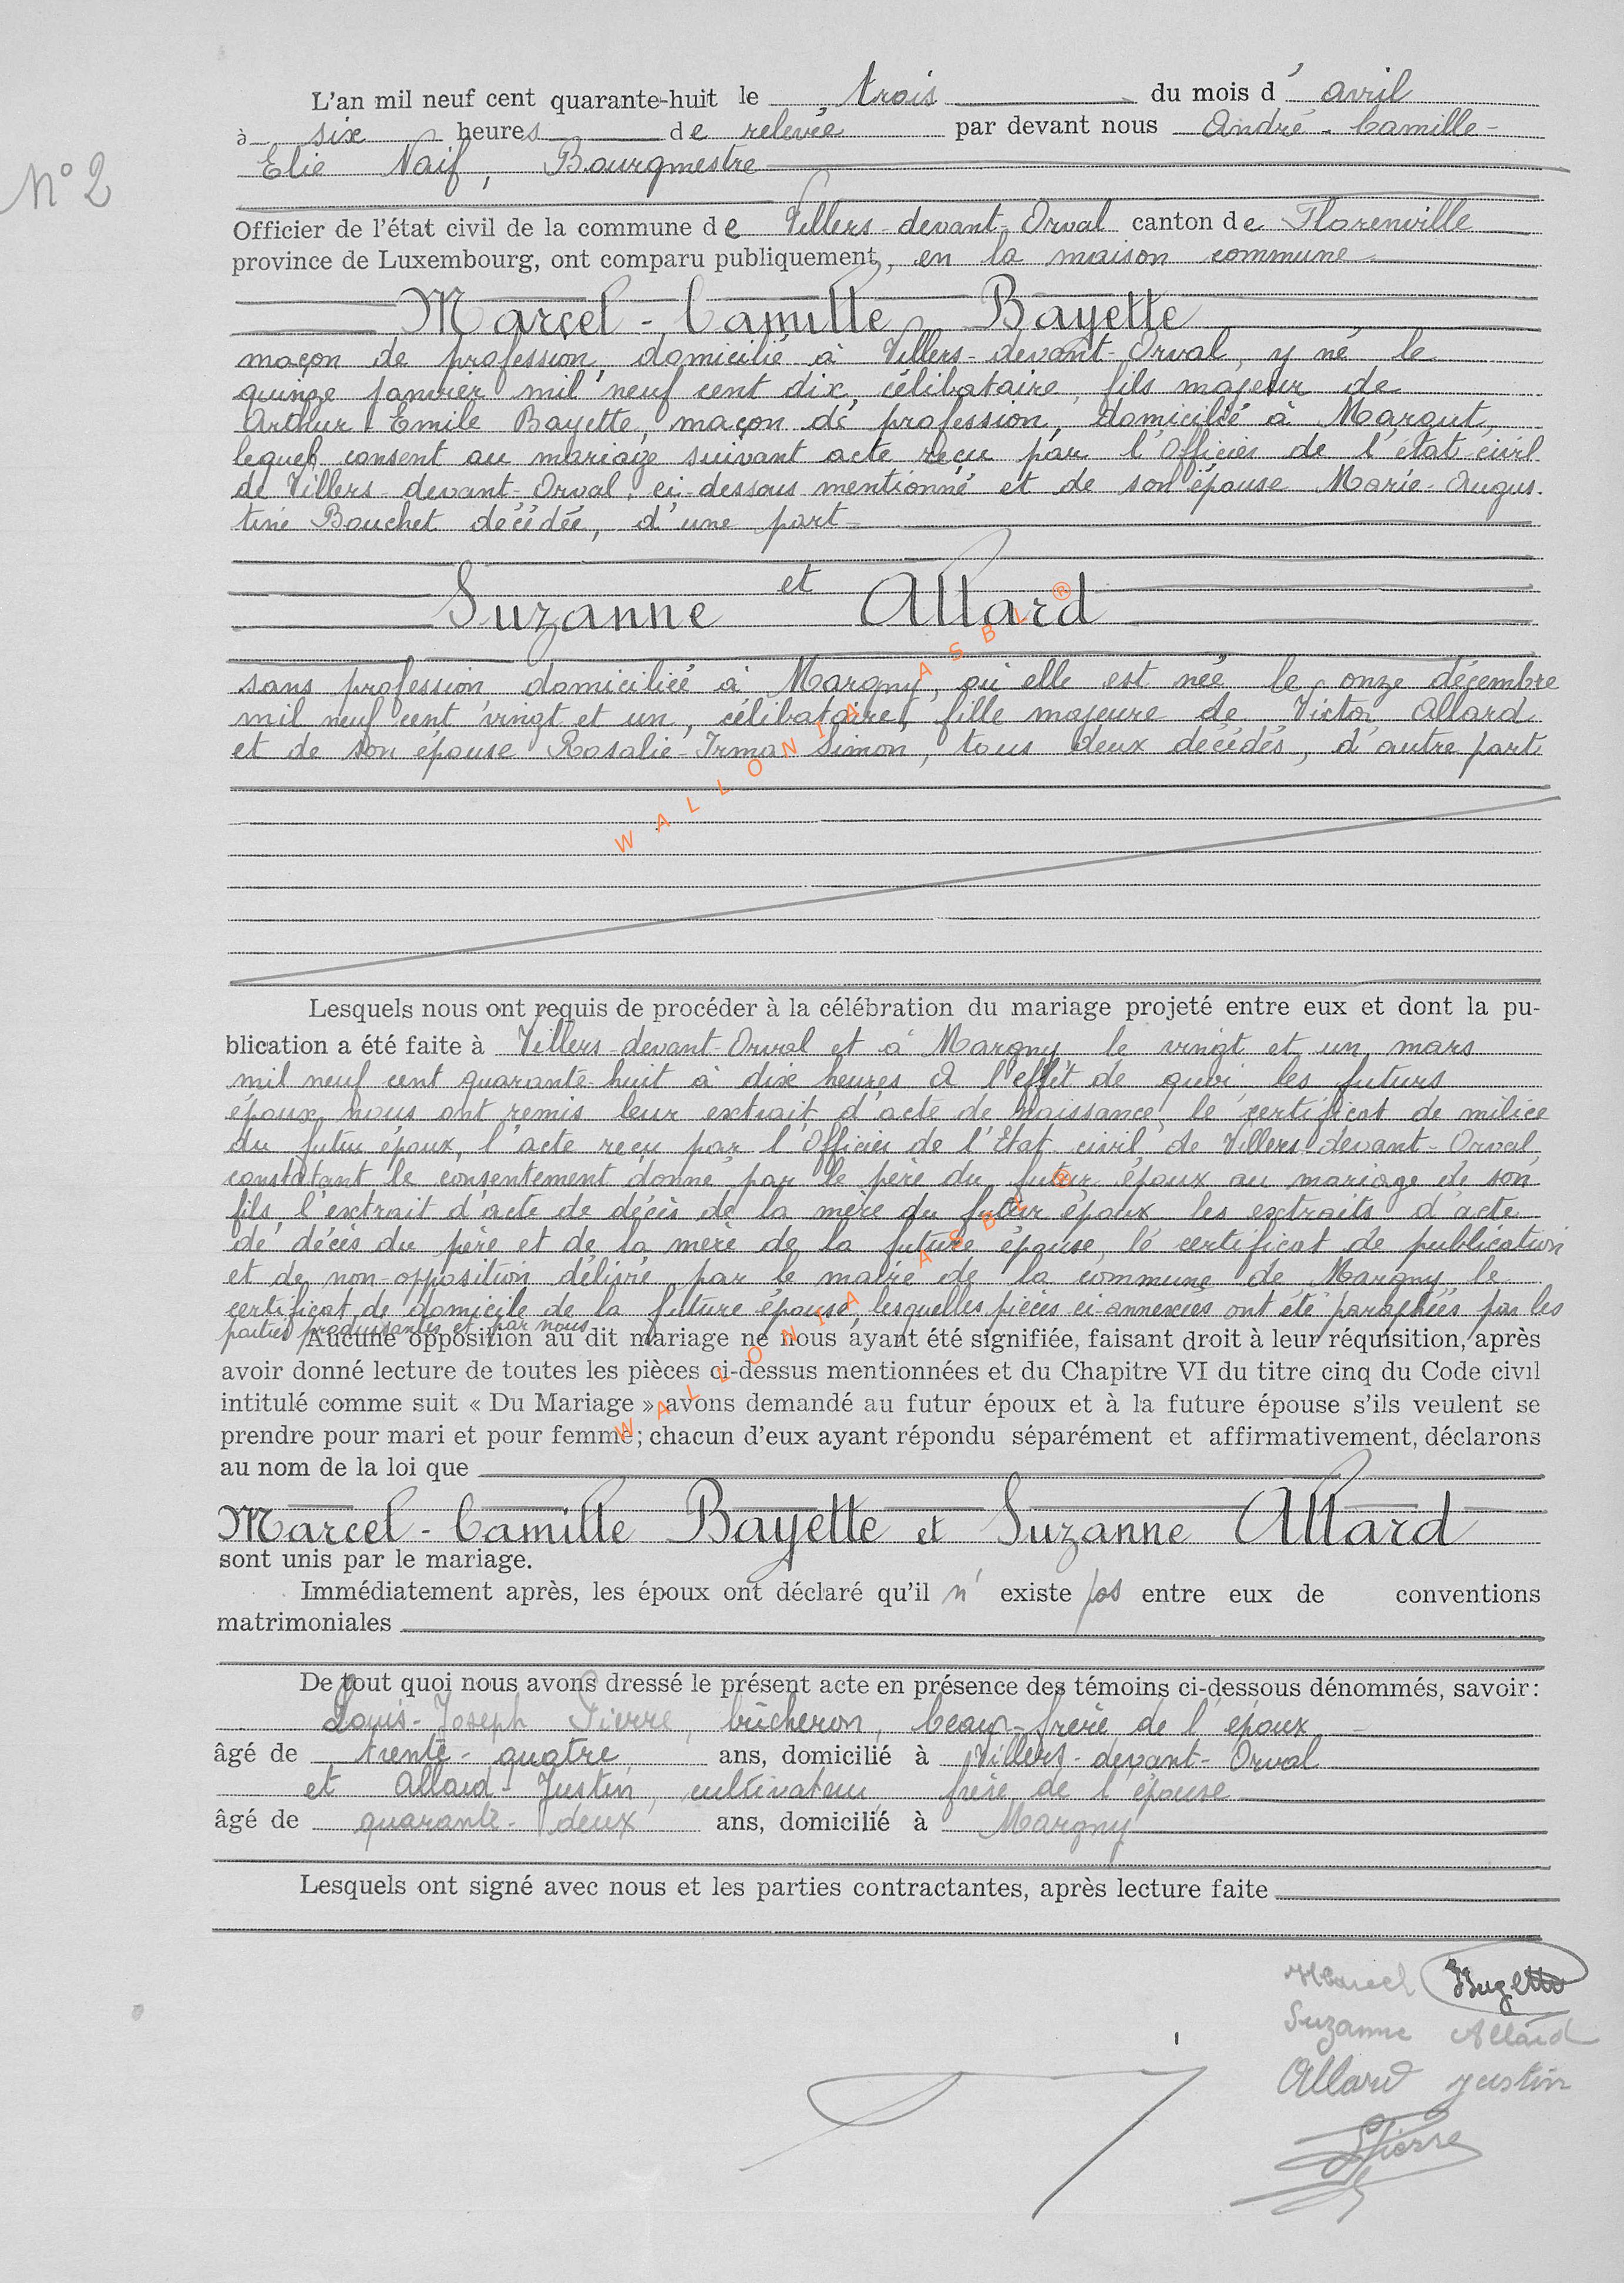 N° 2
L'an mil neuf cent quarante-huit le trois du mois d' avril
à six heures de relevée par devant nous André-Camille-
Elie Naif, Bourgmestre
Officier de l'état civil de la commune de Villers-devant-Orval canton de Florenville
province de Luxembourg, ont comparu publiquement, en la maison commune
Marcel-Camille Bayette
maçon de profession, domicilié à Villers-devant-Orval, y né le
quinze janvier mil neuf cent dix, célibataire, fils majeur de
Arthur Emile Bayette, maçon de profession, domicilié à Margut,
lequel consent au mariage suivant acte reçu par l'Officier de l'état-civil
de Villers-devant-Orval, ci-dessous mentionné et de son épouse Marie-Augus-
tine Bouchet décédée, d'une part
et
Suzanne Allard
sans profession domiciliée à Margny, où elle est née le onze décembre
mil neuf cent vingt et un, célibataire, fille majeure de Victor Allard
et de son épouse Rosalie-Irma Simon, tous deux décédés, d'autre part
WALLONIA ASBL ®
Lesquels nous ont requis de procéder à la célébration du mariage projeté entre eux et dont la pu-
blication a été faite à Villers-devant-Orval et à Margny le vingt et un mars
mil neuf cent quarante-huit à dix heures à l'effet de quoi les futurs
époux nous ont remis leur extrait d'acte de naissance, le certificat de milice
du futur époux, l'acte reçu par l'Officier de l'Etat civil de Villers-devant-Orval,
constatant le consentement donné par le père du futur époux au mariage de son
fils, l'extrait d'acte de décès de la mère du futur époux, les extraits d'acte
de décès du père et de la mère de la future épouse, le certificat de publication
et de non-opposition délivré par le maire de la commune de Margny, le
certificat de domicile de la future épouse, lesquelles pièces ci-annexées ont été paraphées par les
parties produisantes et par nous
WALLONIA ASBL ®
Aucune opposition au dit mariage ne nous ayant été signifiée, faisant droit à leur réquisition, après
avoir donné lecture de toutes les pièces ci-dessus mentionnées et du Chapitre VI du titre cinq du Code civil
intitulé comme suit « Du Mariage » avons demandé au futur époux et à la future épouse s'ils veulent se
prendre pour mari et pour femme; chacun d'eux ayant répondu séparément et affirmativement, déclarons
au nom de la loi que
Marcel-Camille Bayette et Suzanne Allard
sont unis par le mariage.
Immédiatement après, les époux ont déclaré qu'il n' existe pas entre eux de conventions
matrimoniales
De tout quoi nous avons dressé le présent acte en présence des témoins ci-dessous dénommés, savoir:
Louis-Joseph Pierre, bûcheron, beau-frère de l'époux
âgé de trente-quatre ans, domicilié à Villers-devant-Orval
et Allard Justin, cultivateur, frère de l'épouse
âgé de quarante-deux ans, domicilié à Margny
Lesquels ont signé avec nous et les parties contractantes, après lecture faite
Marcel Bayette
Suzanne Allard
Allard Justin
LPierre